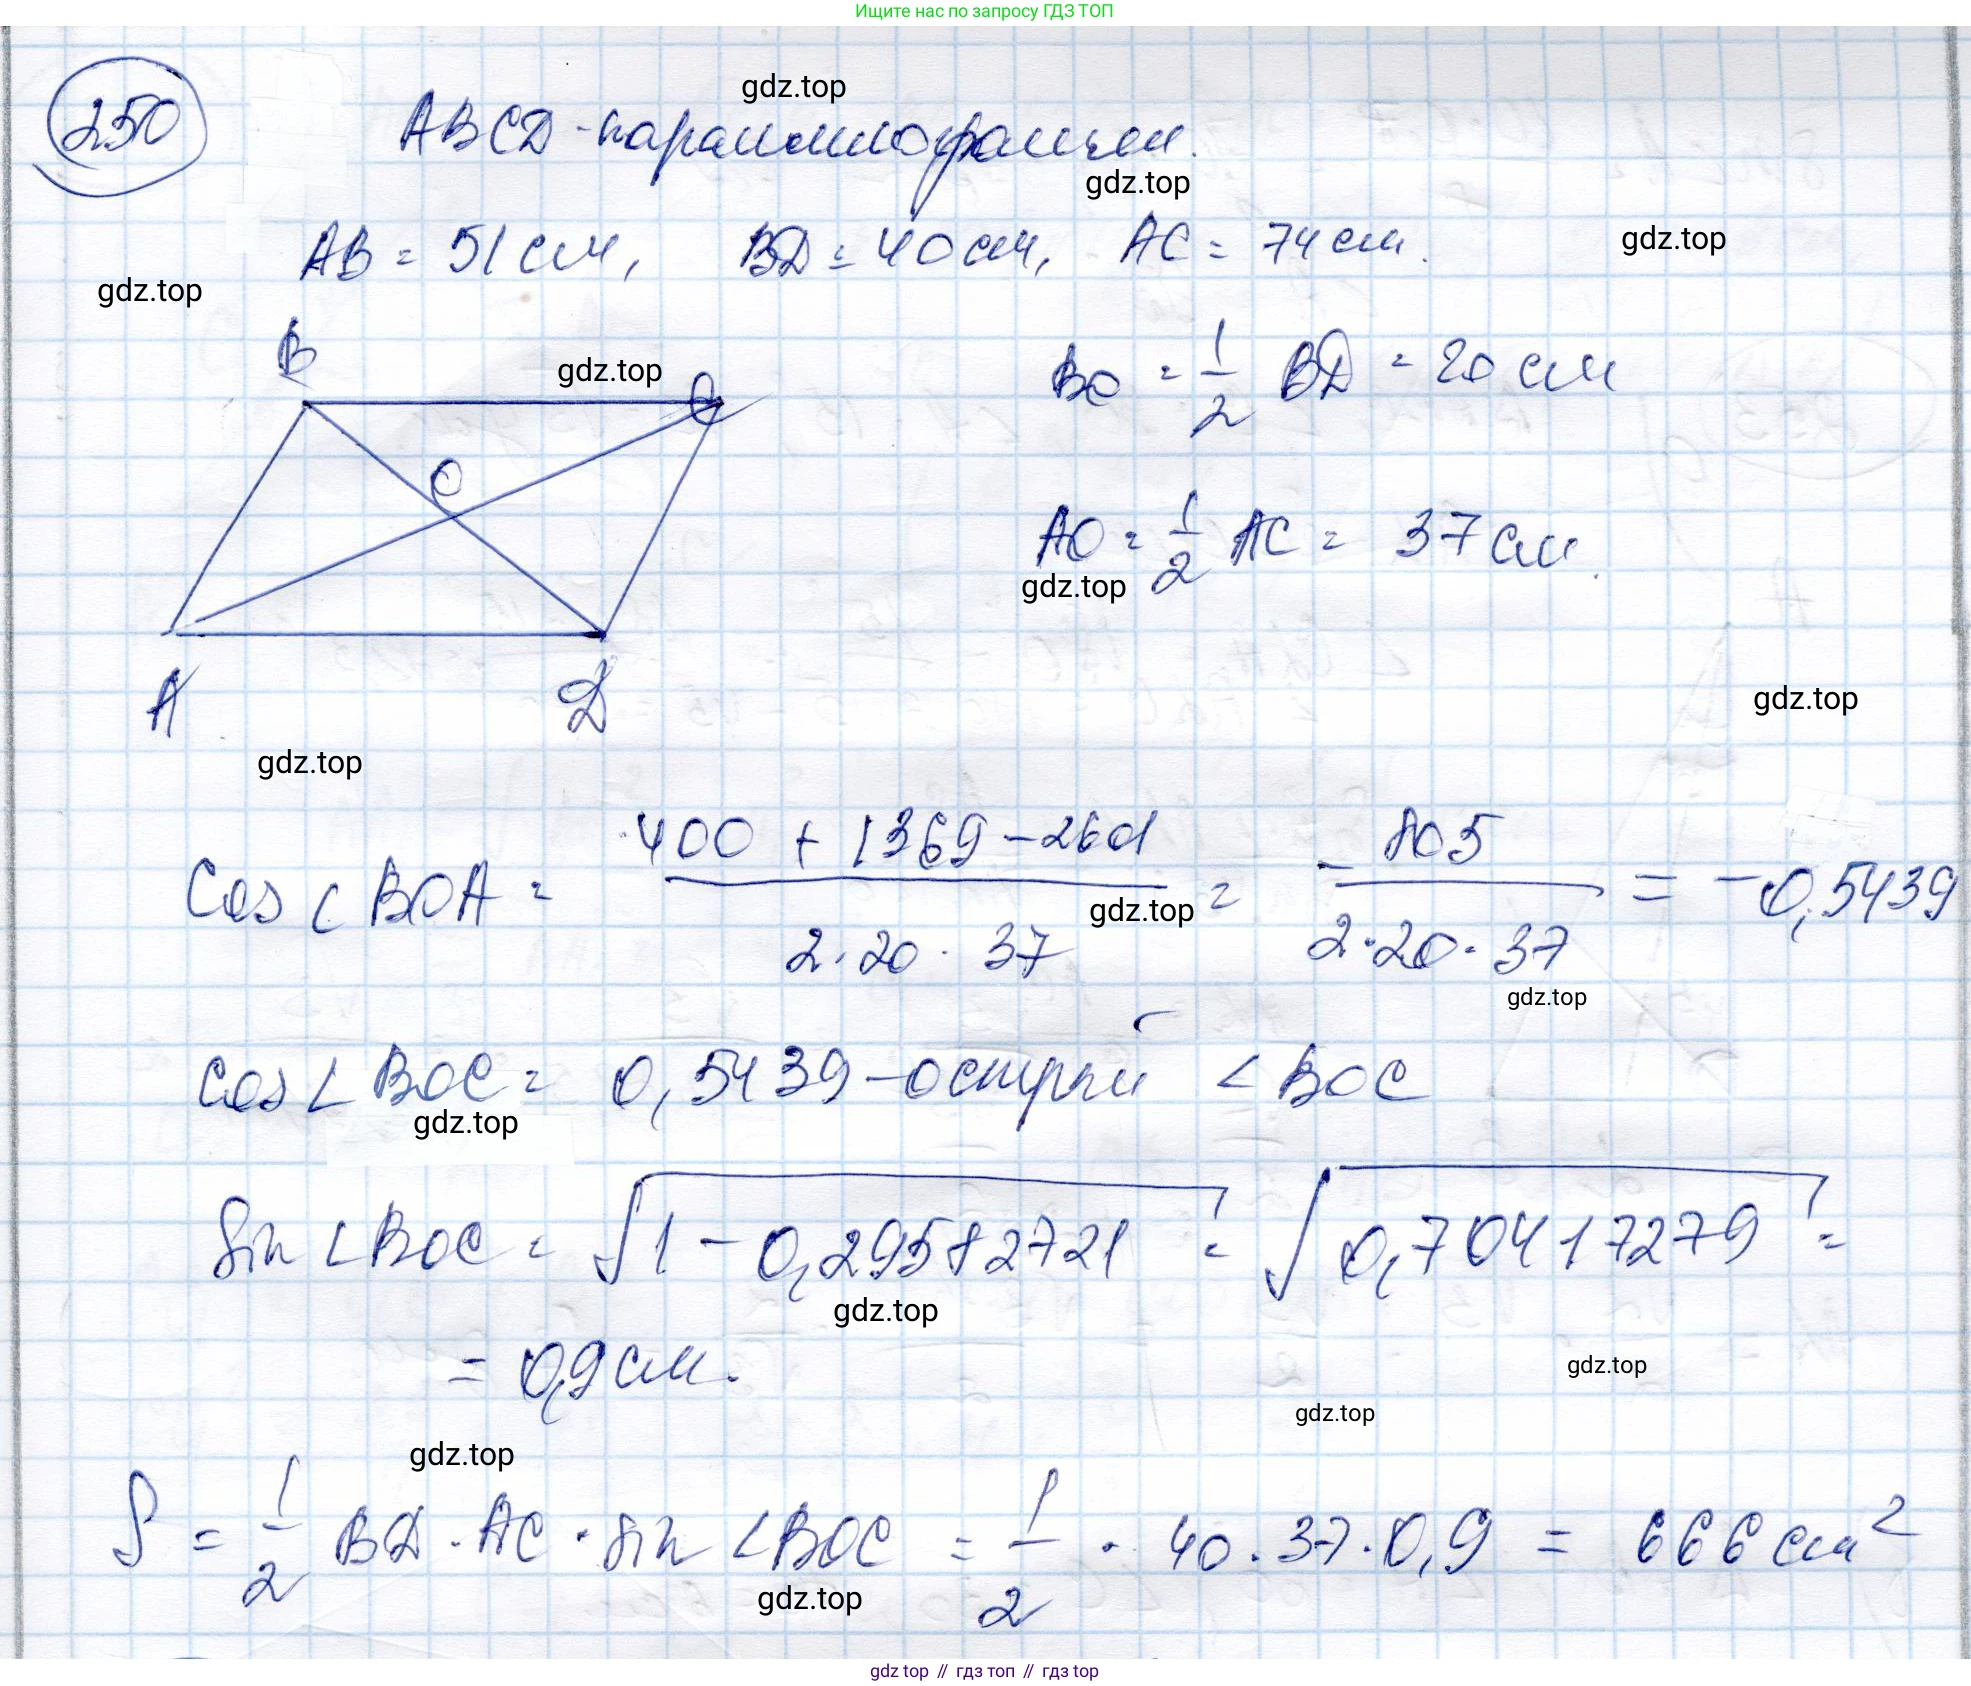 Ищите нас по запросу ГДЗ ТОП
250
ABCD - параллелограмм.
gdz.top
gdz.top
AB = 51 см, BD = 40 см, AC = 74 см.
gdz.top
gdz.top
B
gdz.top
C
O
A
D
BO = 1/2 BD = 20 см
AO = 1/2 AC = 37 см.
gdz.top
gdz.top
gdz.top
Cos ∠ BOA = (400 + 1369 - 2601)/(2·20·37) = -805/(2·20·37) = -0,5439
gdz.top
gdz.top
Cos ∠ BOC = 0,5439 - острый ∠ BOC
gdz.top
Sin ∠ BOC = √(1 - 0,29582721) = √(0,70417279) =
gdz.top
= 0,9 см.
gdz.top
gdz.top
gdz.top
S = 1/2 BD · AC · Sin ∠ BOC = 1/2 · 40 · 37 · 0,9 = 666 см²
gdz.top
gdz top // гдз топ // гдз top